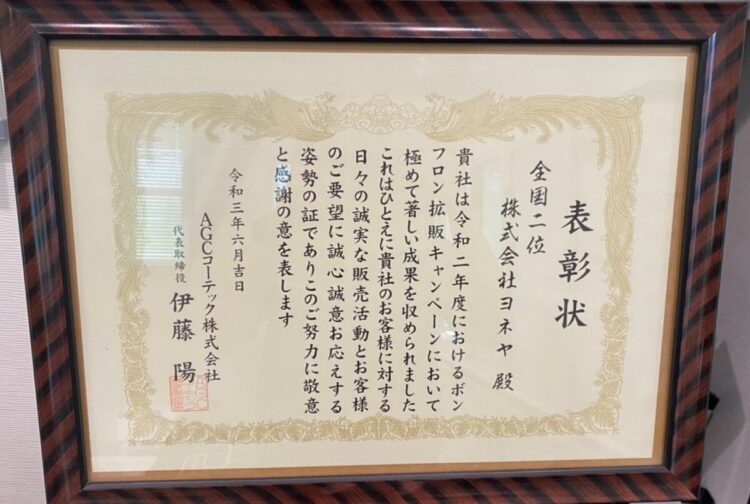 表彰状
全国二位
株式会社ヨネヤ 殿
貴社は令和二年度におけるボン
フロン拡販キャンペーンにおいて
極めて著しい成果を収められました
これはひとえに貴社のお客様に対する
日々の誠実な販売活動とお客様
のご要望に誠心誠意お応えする
姿勢の証でありこのご努力に敬意
と感謝の意を表します
令和三年六月吉日
AGCコーテック株式会社
代表取締役 伊藤 陽